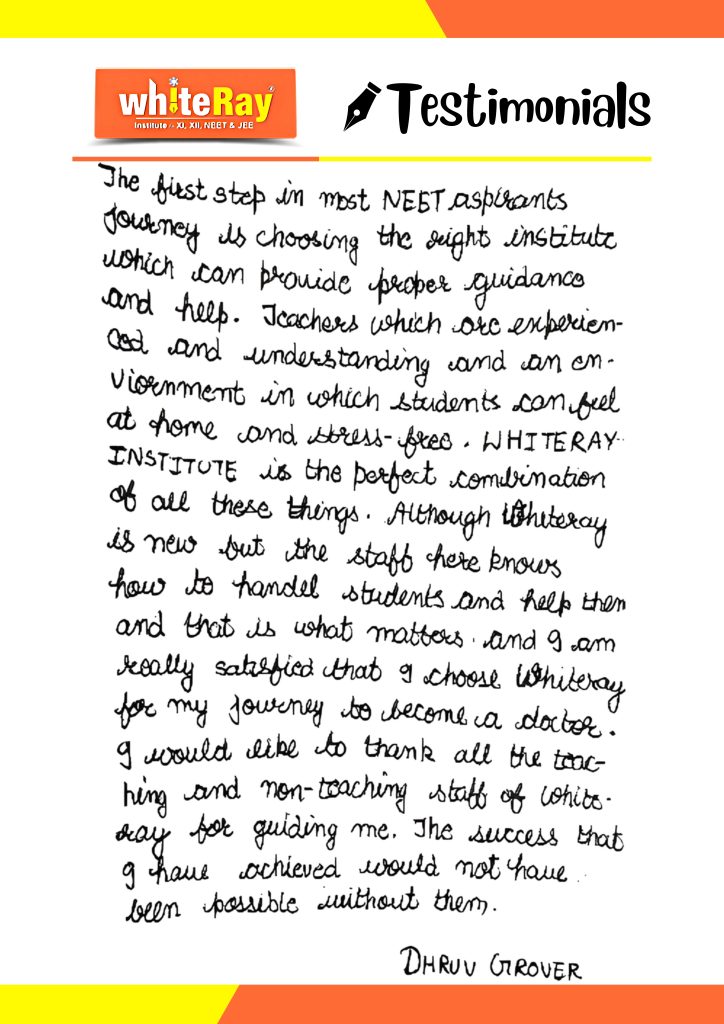 whiteRay
Institute for XI, XII, NEET & JEE
Testimonials
The first step in most NEET aspirants
journey is choosing the right institute
which can provide proper guidance
and help. Teachers which are experien-
ced and understanding and an en-
viornment in which students can feel
at home and stress-free. WHITERAY
INSTITUTE is the perfect combination
of all these things. Although Whiteray
is new but the staff here knows
how to handel students and help them
and that is what matters. and I am
really satisfied that I choose Whiteray
for my journey to become a doctor.
I would like to thank all the teac-
hing and non-teaching staff of White-
ray for guiding me. The success that
I have achieved would not have
been possible without them.
DHRUV GROVER